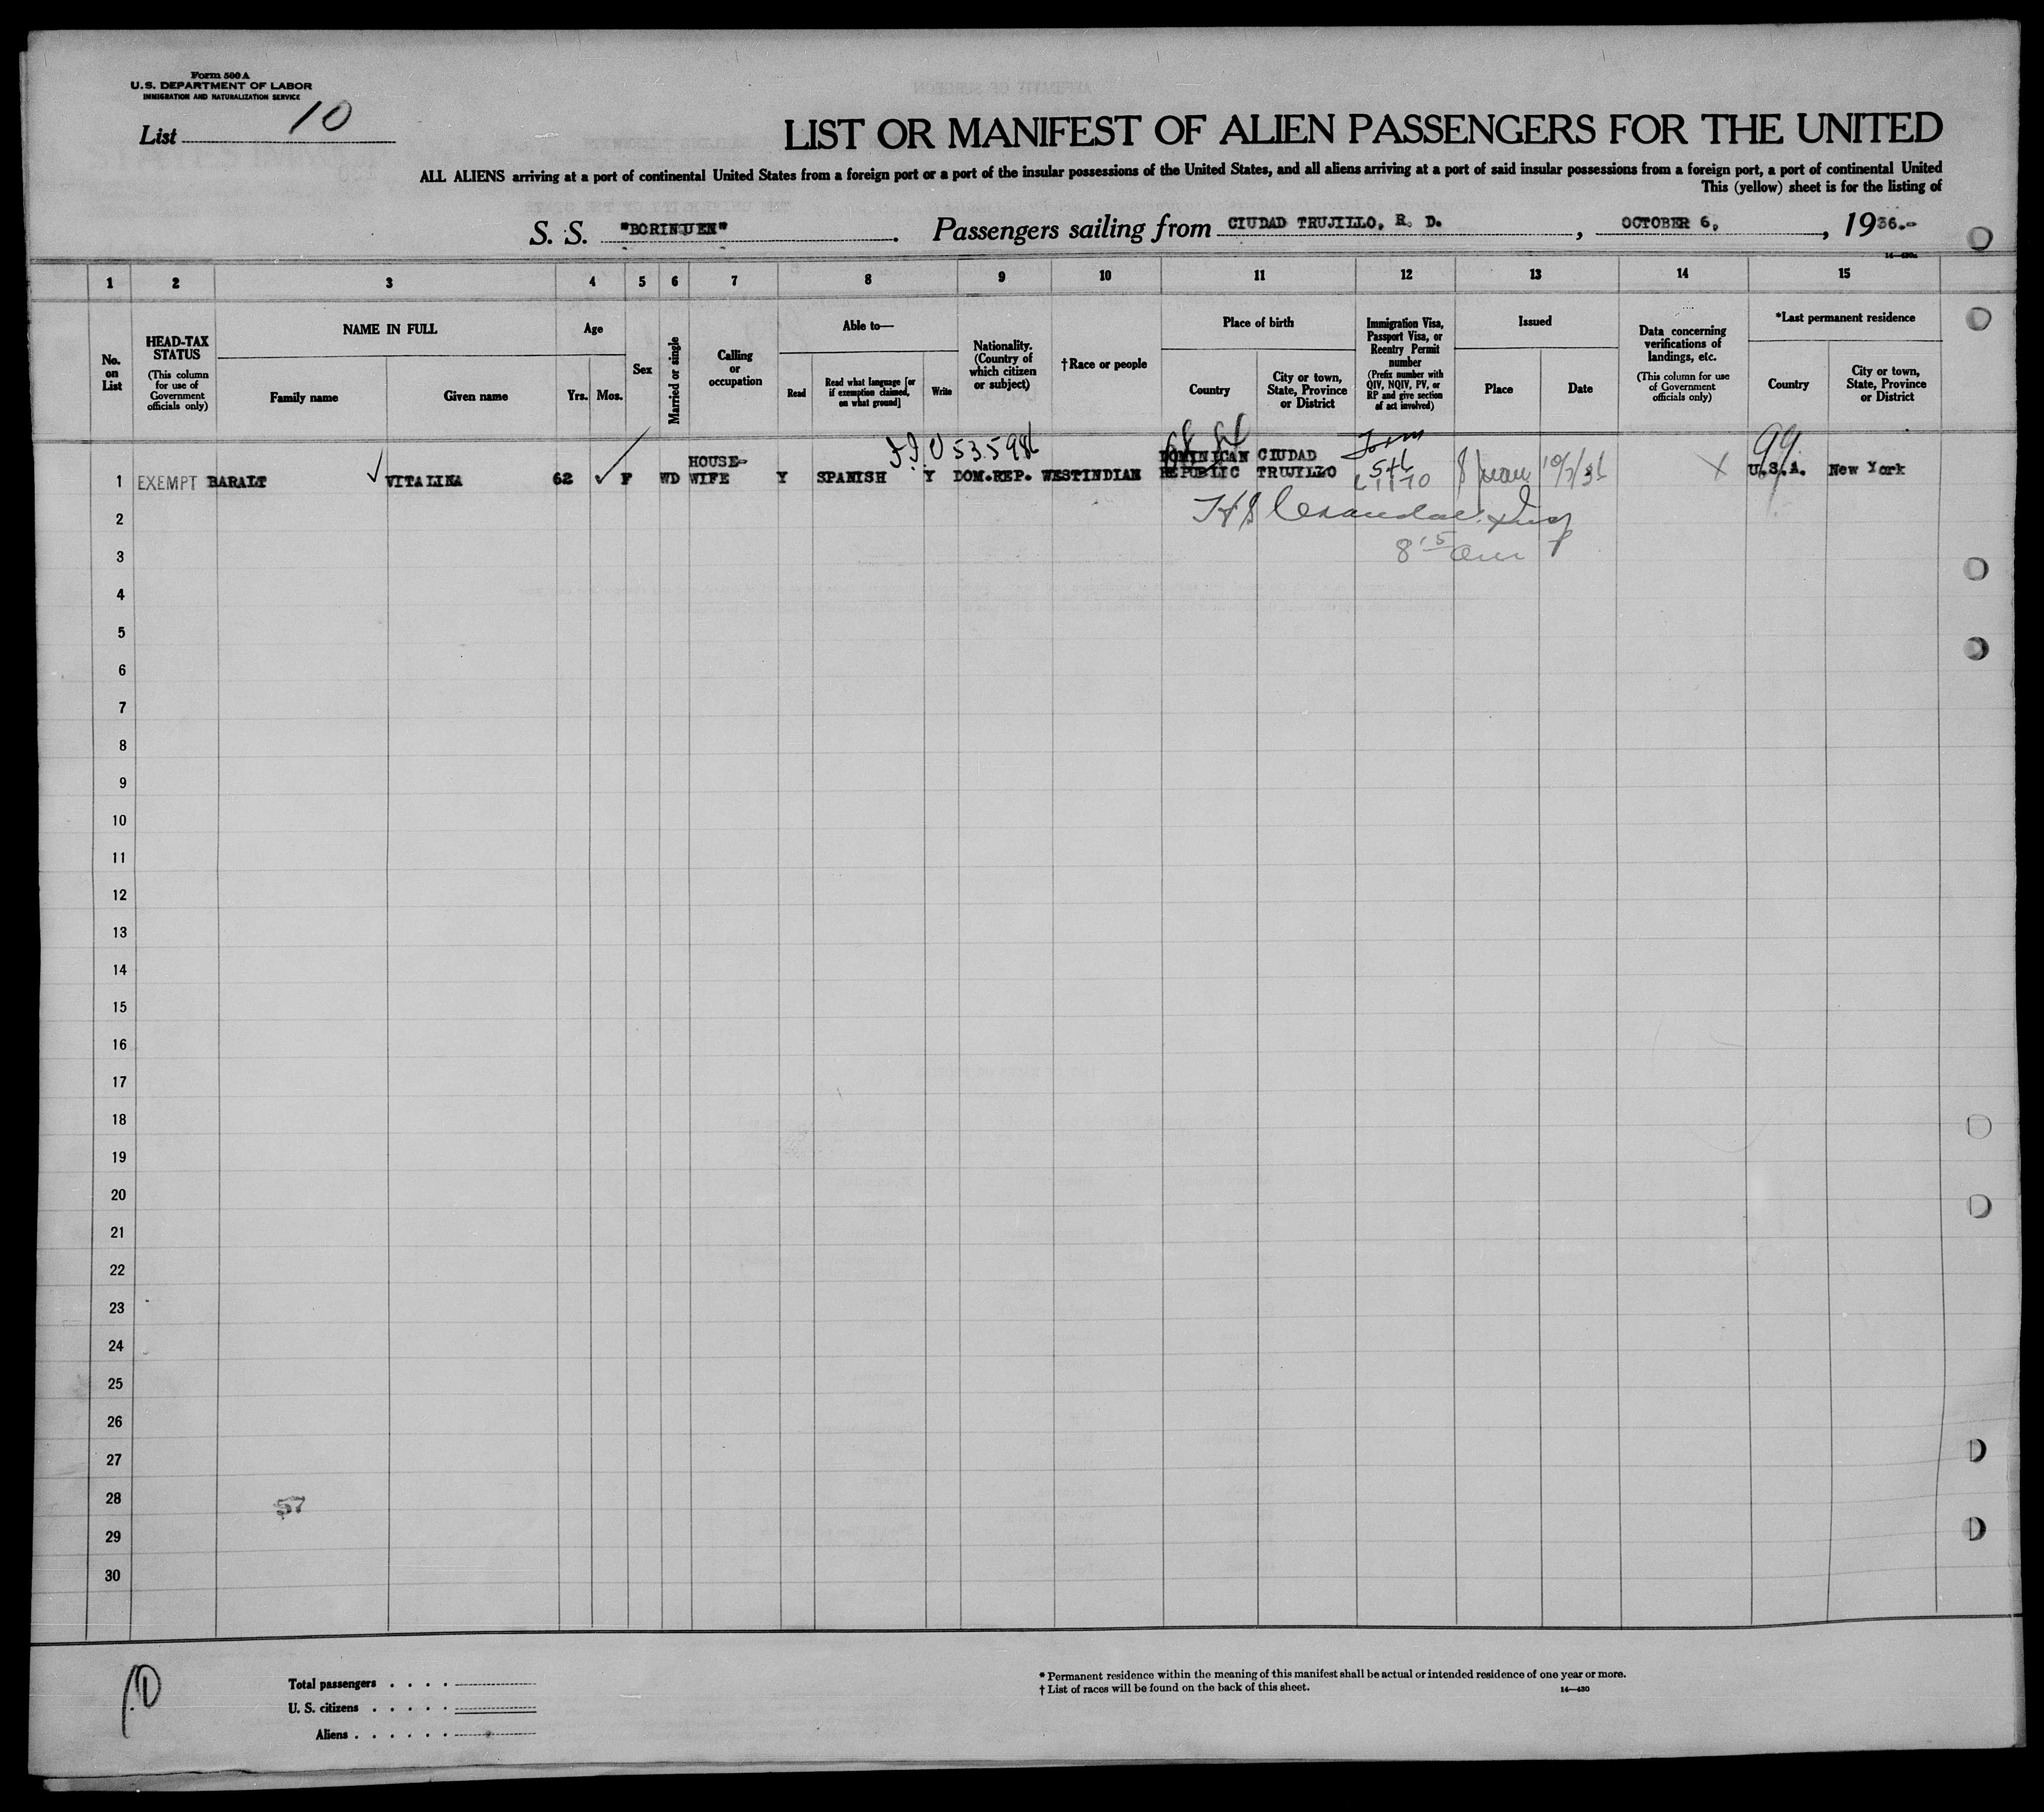 Form 500 A
U.S. DEPARTMENT OF LABOR
IMMIGRATION AND NATURALIZATION SERVICE
List 10
LIST OR MANIFEST OF ALIEN PASSENGERS FOR THE UNITED
ALL ALIENS arriving at a port of continental United States from a foreign port or a port of the insular possessions of the United States, and all aliens arriving at a port of said insular possessions from a foreign port, a port of continental United
This (yellow) sheet is for the listing of
S. S. "BORINQUEN". Passengers sailing from CIUDAD TRUJILLO, R. D., OCTOBER 6, , 1936.-
1 2 3 4 5 6 7 8 9 10 11 12 13 14 15
No. on List
HEAD-TAX STATUS
(This column for use of Government officials only)
NAME IN FULL
Family name
Given name
Age
Yrs. Mos.
Sex
Married or single
Calling or occupation
Able to—
Read
Read what language [or if exemption claimed, on what ground]
Write
Nationality. (Country of which citizen or subject)
†Race or people
Place of birth
Country
City or town, State, Province or District
Immigration Visa, Passport Visa, or Reentry Permit number
(Prefix number with QIV, NQIV, PV, or RP and give section of act involved)
Issued
Place
Date
Data concerning verifications of landings, etc.
(This column for use of Government officials only)
*Last permanent residence
Country
City or town, State, Province or District
535986
99
1 EXEMPT BARALT VITALINA 62 F WD HOUSE-WIFE Y SPANISH Y DOM.REP. WESTINDIAN DOMINICAN REPUBLIC CIUDAD TRUJILLO U.S.A. New York
2
3 8 15 am
4
5
6
7
8
9
10
11
12
13
14
15
16
17
18
19
20
21
22
23
24
25
26
27
28 57
29
30
10
Total passengers . . . .
U. S. citizens . . . . .
Aliens . . . . . .
* Permanent residence within the meaning of this manifest shall be actual or intended residence of one year or more.
† List of races will be found on the back of this sheet.
14—430